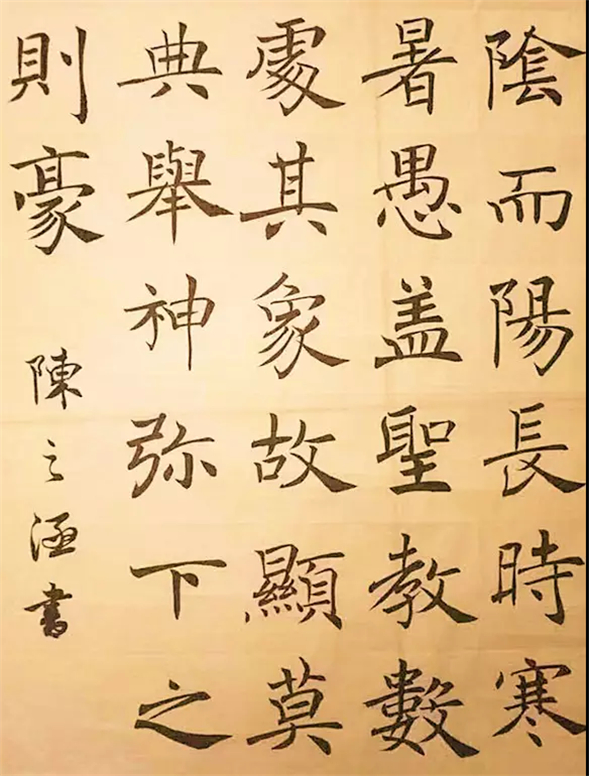 陰而陽長時寒
暑愚盖聖教數
處其象故顯莫
典舉神弥下之
則豪
陳之涵書